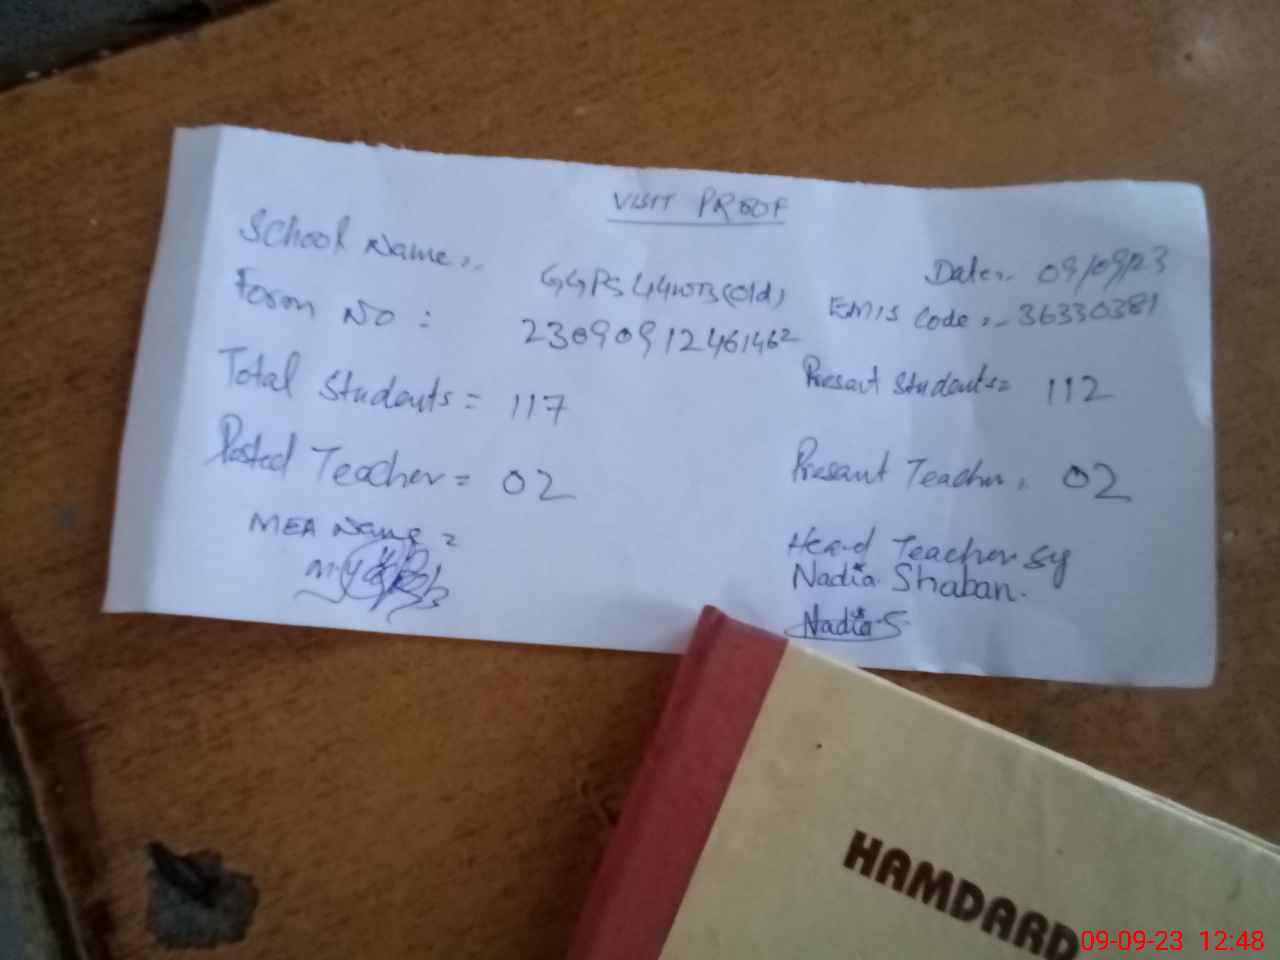 VISIT PROOF
School Name:-
GGPS 44WB(Old)
Date:- 09/09/23
Form No :
23090912461462
EMIS Code:- 36330381
Total Students = 117
Presant Students= 112
Posted Teacher = 02
Presant Teacher = 02
MEA Name =
Head Teacher Sig
Nadia Shaban.
Nadia S
HAMDARD
09-09-23 12:48